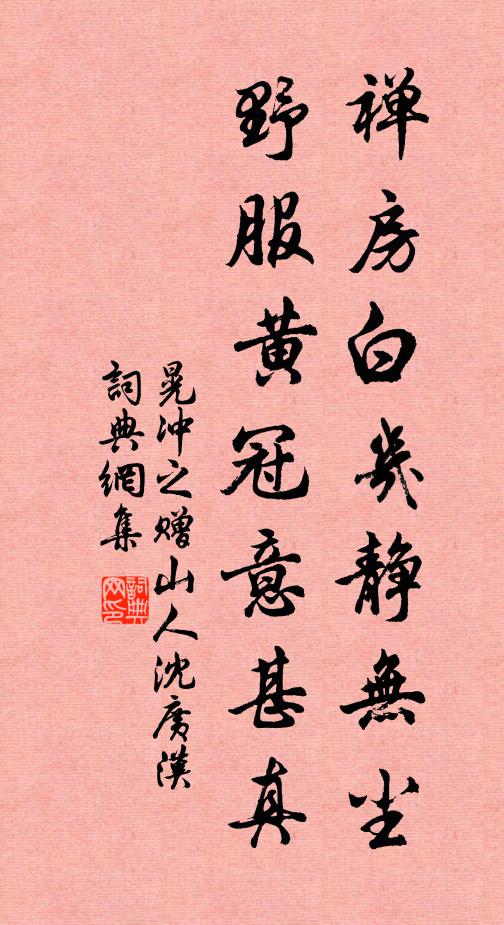 禅房白幾静無尘
野服黄冠意甚真
晁冲之赠山人沈廣漢
詞典網集
詞典
网印